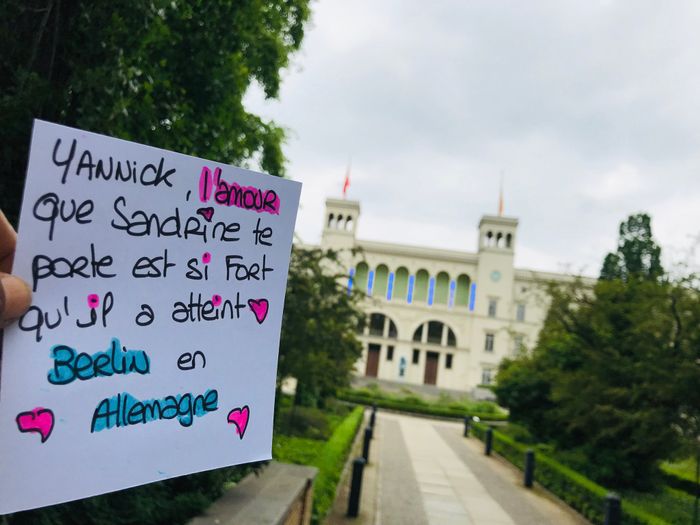 YANNick, l'amour
que SandRine te
porte est si Fort
qu'il a atteint
Berlin en
Allemagne